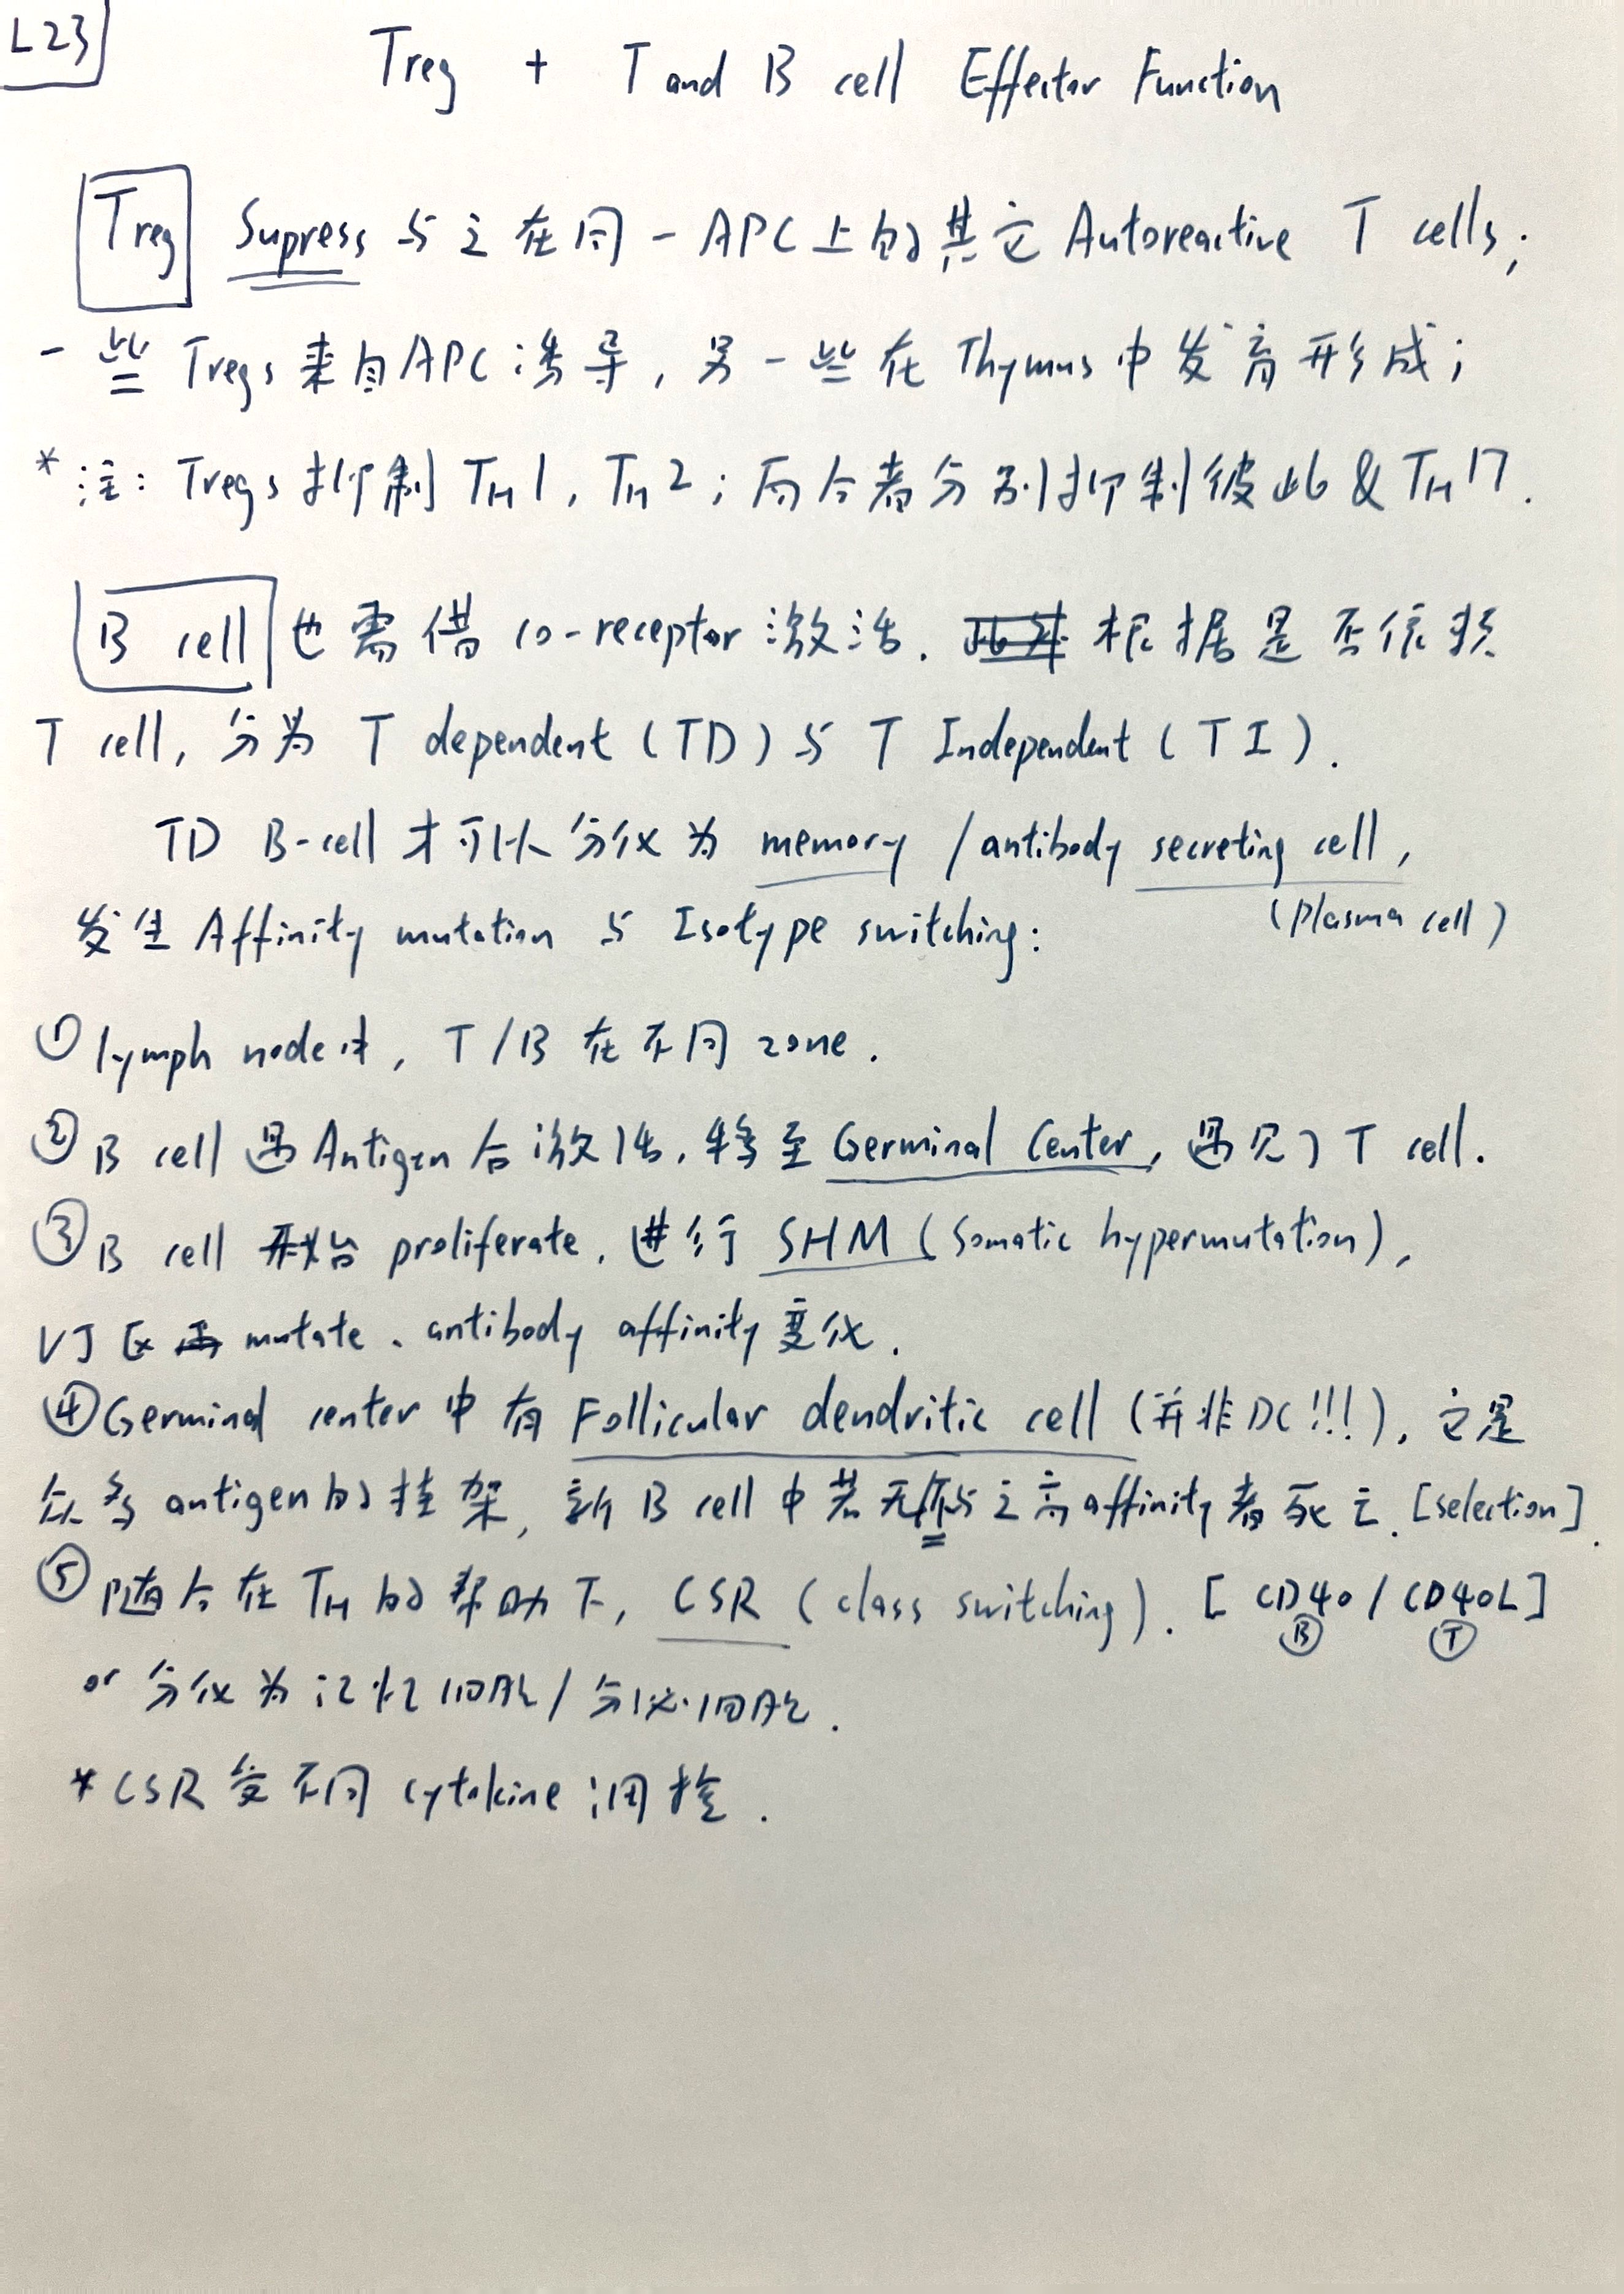 L23
Treg + T and B cell Effector Function
Treg Supress 与之在同一APC上的其它 Autoreactive T cells;
一些 Tregs 来自APC诱导, 另一些在 Thymus 中发育形成;
*注: Tregs 抑制 TH1, TH2; 而后者分别抑制彼此 & TH17.
B cell 也需借 co-receptor 激活. 此外 根据是否依赖
T cell, 分为 T dependent (TD) 与 T Independent (TI).
TD B-cell 才可以分化为 memory / antibody secreting cell,
(Plasma cell)
发生 Affinity mutation 与 Isotype switching:
① lymph node 中, T/B 在不同 zone.
② B cell 遇 Antigen 后激活, 转至 Germinal Center, 遇见了 T cell.
③ B cell 开始 proliferate, 进行 SHM (Somatic hypermutation),
VJ区 mutate, antibody affinity 变化.
④ Germinal center 中有 Follicular dendritic cell (并非DC!!!), 它是
众多 antigen 的挂架, 新 B cell 中若无与之高 affinity 者死亡. [selection].
⑤ 随后在 TH 的帮助下, CSR (class switching). [CD40 / CD40L]
Ⓑ Ⓣ
or 分化为记忆细胞/分泌细胞.
* CSR 受不同 cytokine 调控.